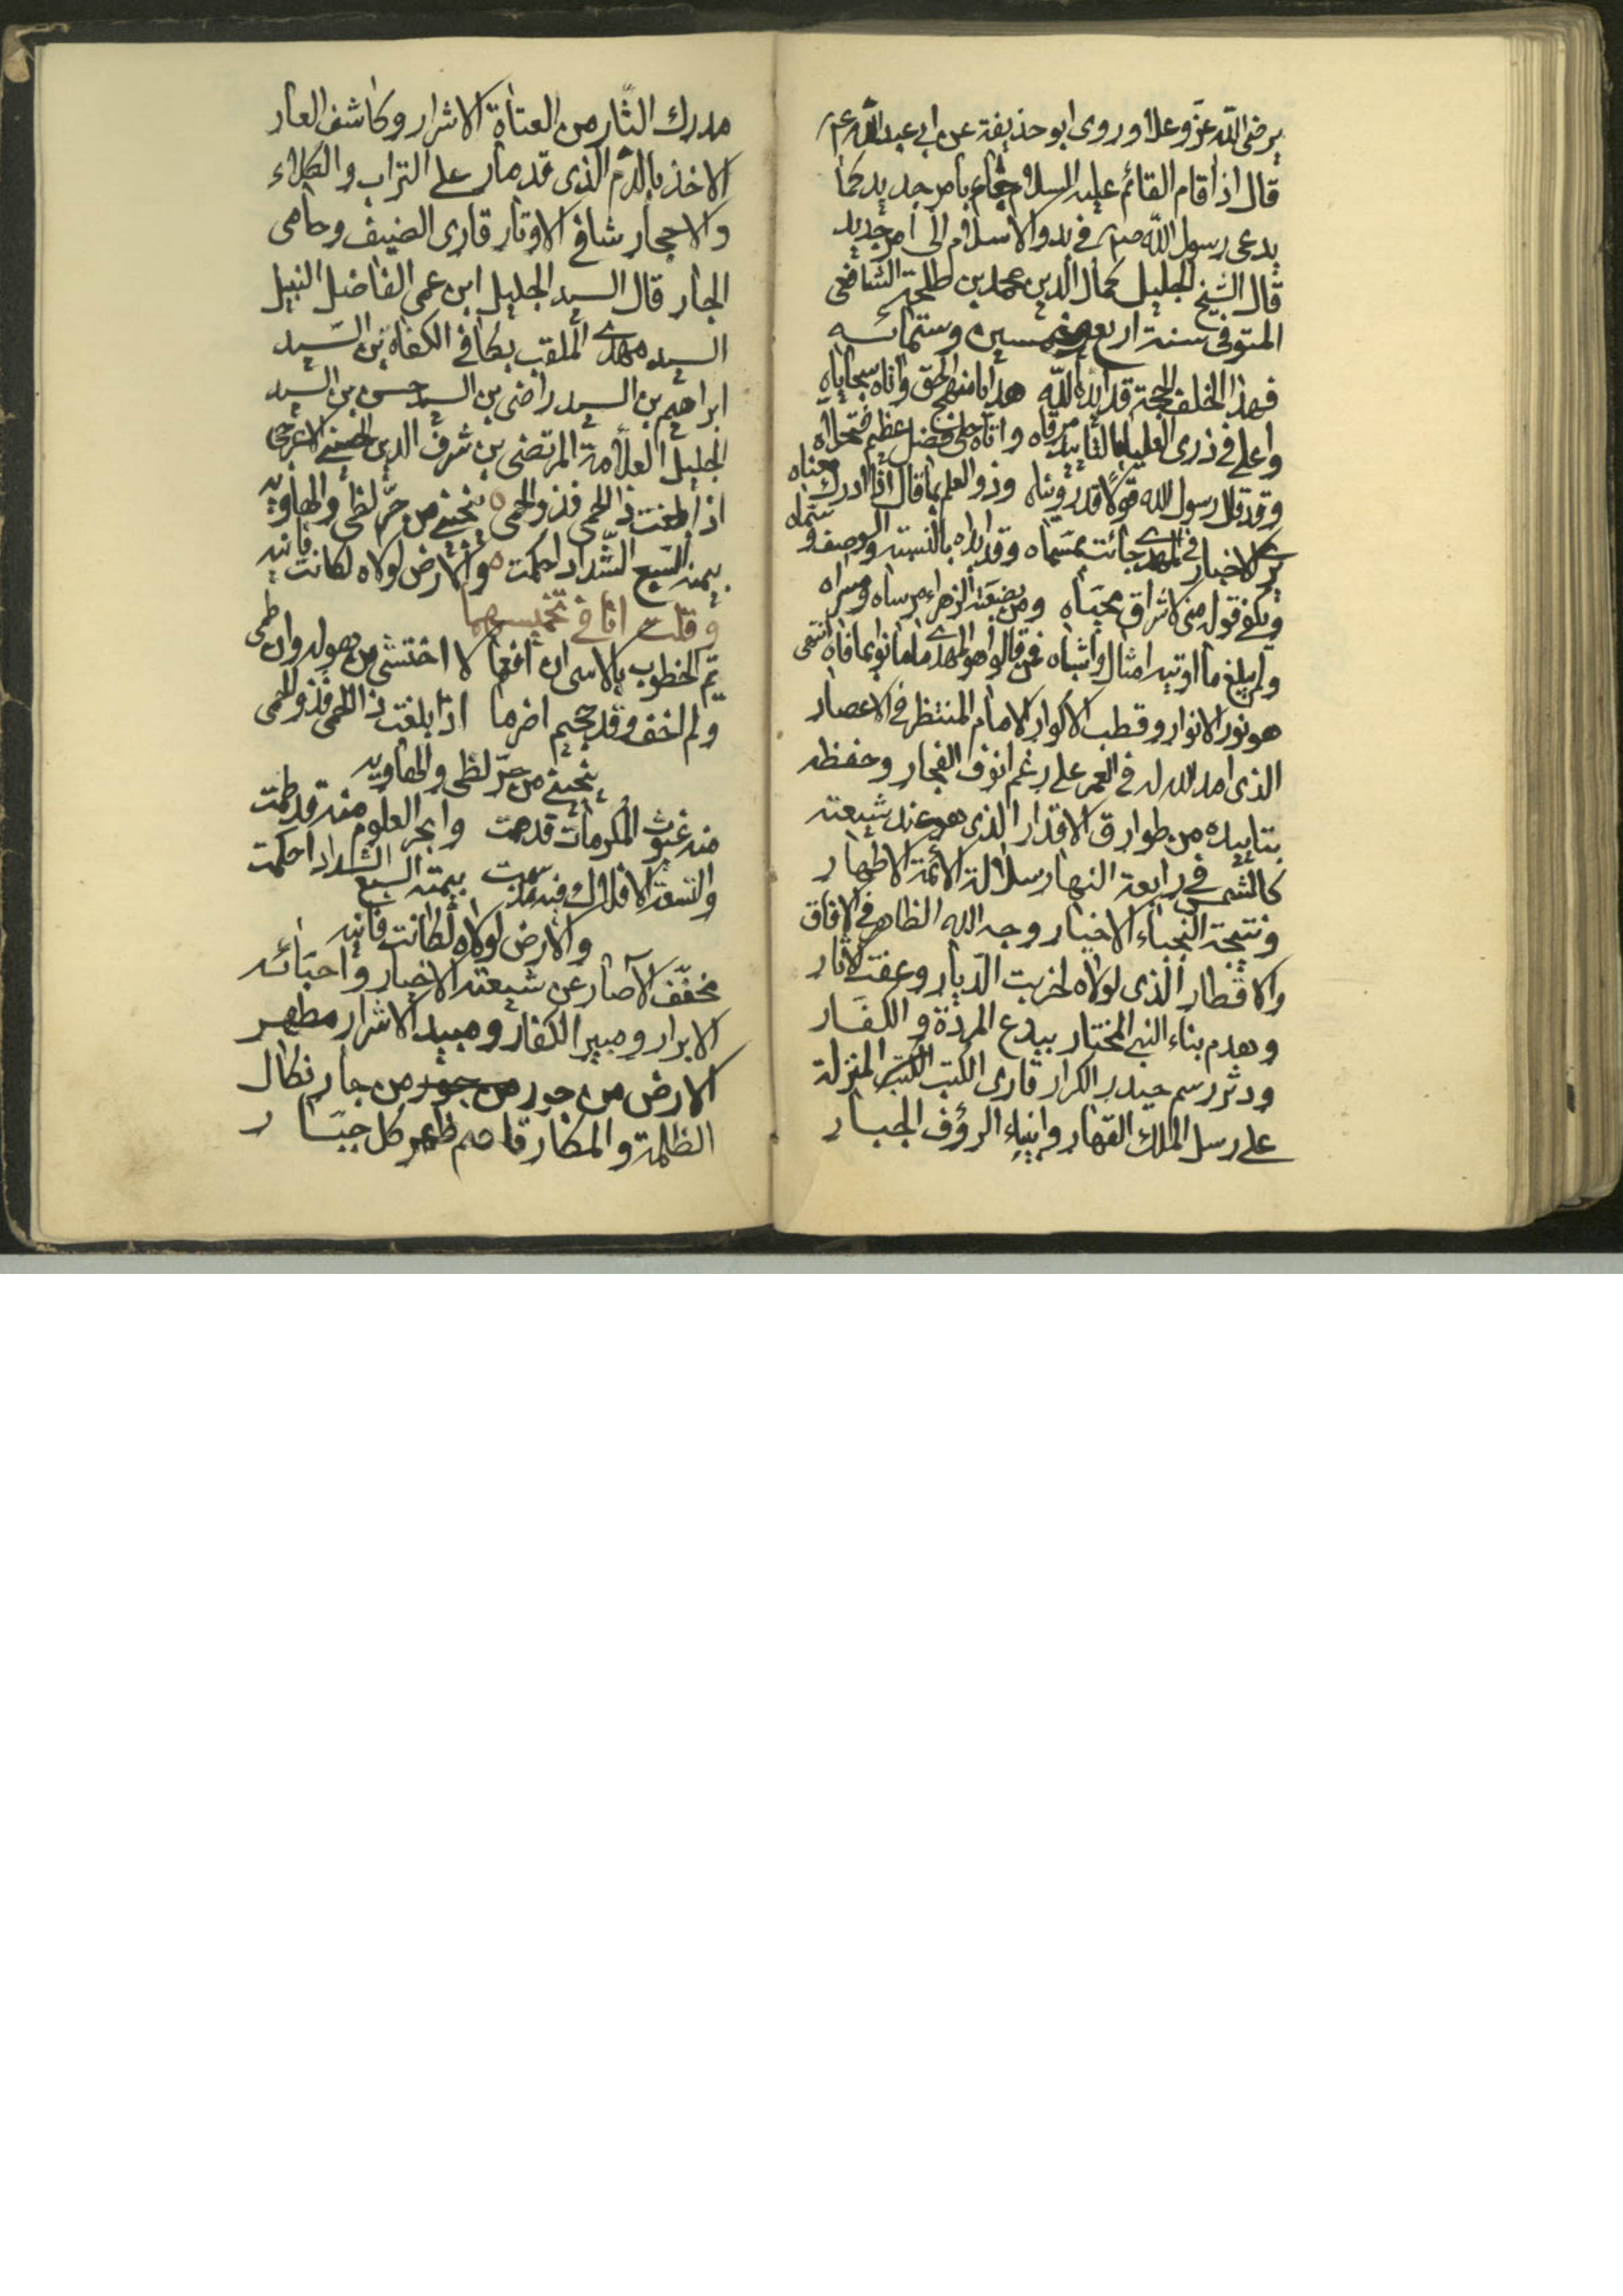 يرضى اللّه عزّ وعلا وروى ابو حذيفة عن ابي عبد اللّه عم
قال اذا قام القائم عليه السلام جاء بامر جديد كما
يدعى رسول اللّه صم في بدو الاسلام الى امر جديد
قال الشيخ الجليل كمال الدين محمد بن طلحة الشافعى
المتوفى سنة اربع وخمسين وستمائه
فهذا الخلف الحجة قد ايده اللّه هدانا منهج الحق واتاه سجاياه
واعلى في ذرى العليا بالتاييد مرقاه واتاه حلى فضل عظيم فتحلاه
وقد قال رسول الله قولا قد رويناه وذو العلم بما قال اذا ادرك معناه
يرى الاخبار في المهدى جائت بمسماه وقد ابداه بالنسبة والوصف وسماه
ويكفى قوله منى لاشراق محياه ومن بضعته الزهراء مرساه ومسراه
ولم يبلغ ما اوتيه امثال واشباه فمن قالوا هو المهدى ما مانوا بما فاهوا انتهى
هو نور الانوار وقطب الاكوار الامام المنتظر في الاعصار
الذى امد الله له في العمر على رغم انوف الفجار وحفظه
بتاييده من طوارق الاقدار الذى هو عند شيعته
كالشمس في رابعة النهار سلالة الائمة الاطهار
ونتيجة النجباء الاخيار وجه الله الظاهر في الافاق
والاقطار الذى لولاه لخربت الديار وعفت الاثار
وهدم بناء النبى المختار ببدع المردة والكفار
ودثر رسم حيدر الكرار قارى الكتب الكتب المنزلة
على رسل الملك القهار وانبياء الرؤف الجبار
مدرك الثّار من العتاة الاشرار وكاشف العار
الاخذ بالدّم الذى قد مار على التراب والكلاء
والاحجار شافى الاوتار قارى الضيف وحامى
الجار قال السيد الجليل ابن عمى الفاضل النبيل
السيد مهدى الملقب بكافى الكفاة بن السيد
ابراهيم بن السيد راضى بن السيد حسن بن السيد
الجليل العلّامة المرتضى بن شرف الدين الحسنى الاعرجى
اذا بلغت ذا الحمى فذو الحمى ٥ ينجينى من حرّ لظى والهاويه
بيمنه السبع الشّداد احكمت ٥ والارض لولاه لكانت فانيه
وقلت انا في تخميسها
الخطوب بالاسى ان افعما لا اختشى من هوله وان طمى
ولم اخف وقد جحيم اضرما اذا بلغت ذا الحمى فذو الحمى
ينجينى من حرّ لظى والهاويه
منه غيوث المكرمات قد همت وابحر العلوم منه قد طمت
والتسعة الافلاك فيه قد سمت بيمنه السبع الشداد احكمت
والارض لولاه لكانت فانيه
مخفّف الآصار عن شيعته الاخيار واحبائه
الابرار ومبير الكفار ومبيد الاشرار مطهر
الارض من جور من جور من جار نكال
الظلمة والمكار قاصم ظهر كل جبار